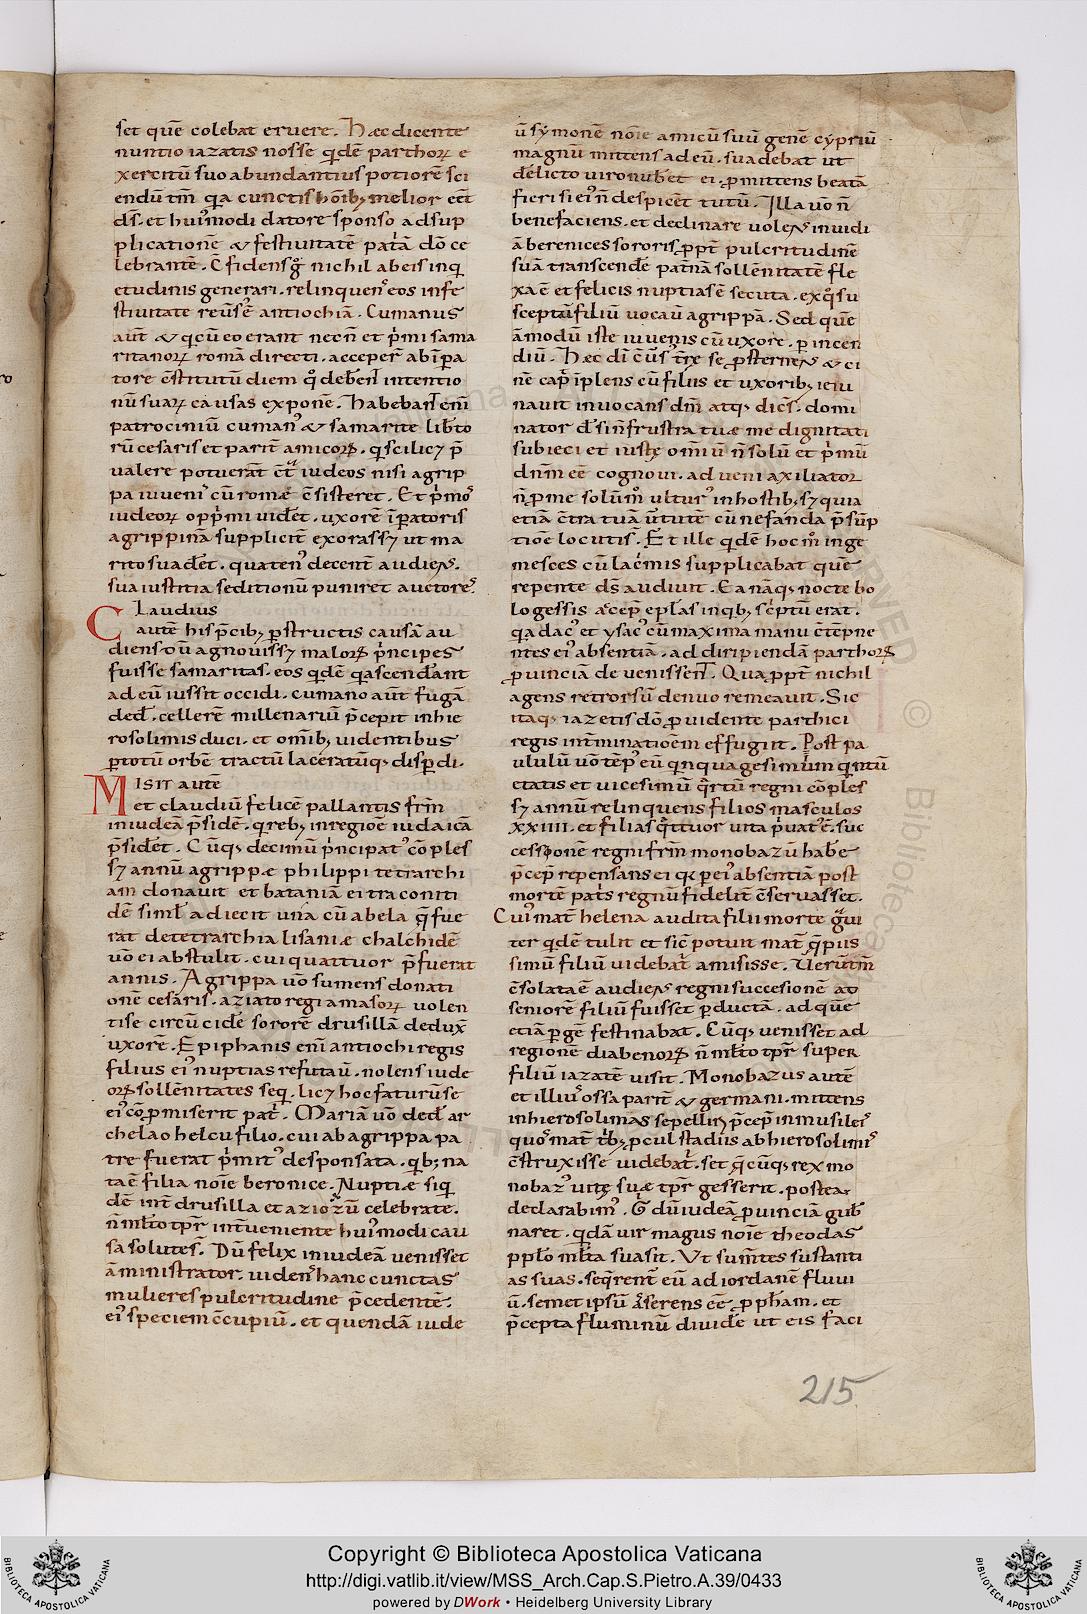 set quē colebat eruere. Hæc dicente
nuntio iazatis nosse qdē parthoꝝ e
xercitū suo abundantius potiorē sci
endū tm̄ qa cunctis hōib; melior eēt
ds. et huiꝰmodi datore sponso adsup
plicationē & festiuitatē patͣā dō ce
lebrante. C̄fidens gͦ nichil ab eis inq
etudinis generari. relinquenſ eos infe
stiuitate reūsꝰē antiochiā. Cumanus
aūt & qcū eo erant necn̄ et pͥmi sama
ritanoꝝ romā directi. acceperͭ ab īpa
tore c̄stitutū diem qͦ deƀenͭ intentio
nū suaꝝ causas exponē. Habebanͭ enī
patrociniū cumanꝰ & samarite liƀto
rū cesaris et parit̄ amicoꝝ. qͥ scilicꝫ p̄
valere potuerāt c̄tͣ iudeos nisi agrip
pa iuueniſ cū romæ c̄sisteret. Et pͥmoſ
iudeoꝝ oppͥmi uidēt. uxorē īpatoris
agrippinā supplicit̄ exorassꝫ ut ma
rito suadet̄. quaten̄ decent̄ audienſ.
sua iustitia seditionū puniret auctoreſ
Claudius
autē his p̄cib; ꝑstructis causā au
diens dū agnouissꝫ maloꝝ pͥncipes
fuisse samaritas. eos qdē qͥ ascenderant
ad eū iussit occidi. cumano aūt fugā
dedͭ. cellerē millenariū p̄cepit in hie
rosolimis duci. et omīb; uidentibus
ꝑ totū orbē tractū laceratūq; disꝑdi.
Misit autē
et claudiū felicē pallantis frm̄
in iudeā p̄sidē. qͥ reb; in regiōe iudaicā
p̄sidet̄. Cūq; decimū pͥncipatꝰ cōples
sꝫ annū agrippæ philippi tetrarchi
am donauit et bataniā ei traconiti
dē similͭ adiecit una cū abela q̄ fue
rat de tetrarchia lisaniæ chalchidē
uō ei abstulit. cui quattuor p̄fuerat
annis. Agrippa uō sumens donati
onē cesaris. aziato regi amasoꝝ uolen
ti se circūcidē sororē drusillā deduxͭ
uxorē. Epiphanis enī antiochi regis
filius eiꝰ nuptias refutaū. nolens iude
oꝝ sollēnitates seq. licꝫ hoc faturū se
eiꝰ cōꝓmiserit patͥ. Mariā uō dedͭ ar
chelao helcu filio. cui ab agrippa pa
tre fuerat pͥmitꝰ desponsata. qb; na
ta ē filia noīe beronice. Nuptiæ siq
dē int̄ drusilla et aziozū celebrate.
n̄ mlto tpr̄ int̄ueniente huiꝰmodi cau
sa soluteſ. Dū felix in iudeā venisset
āministrator. uidenſ hanc cunctas
mulieres pulcritudine p̄cedentē.
eiꝰ speciem c̄cupiū. et quendā iude
ū sẏmonē noīe amicū suū genē cẏpriū
magnū mittens ad eū. suadebat ut
delicto viro nubet̄ ei. ꝓmittens beatā
fieri si eiꝰ n̄ despicet̄ tutū. Illa uō n̄
benefaciens. et declinare uolenſ inuidi
ā berenices sororis ꝓpt̄ pulcritudinē
suā transcendē pat̄nā sollēnitatē fle
xa ē et felicis nuptias ē secuta. ex qͦ su
sceptū filiū vocaū agrippā. Sed quē
ā modū iste iuuenis cū uxore. ꝑ incen
diū. Hæc dic̄ c̄ūsꝰ t̄ræ se ꝓsternenſ & ci
nē capͥ īplens cū filiis et uxorib; ieiu
nauit inuocans dm̄ atq; dicēs. domi
nator dſ si n̄ frustra tuæ me dignitati
subieci et iustę omīū n̄ solū et pͥmū
dn̄m eē cognoui. adueni axiliator
n̄ ꝓ me solūmͦ ulturꝰ in hostib; sꝫ quia
etiā c̄tra tuā ūtutē cū nefanda p̄sūp
tioē locutiſ. Et ille qdē hoc mͦ inge
mescēs cū lacͥmis supplicabat quē
repente ds̄ audiuit. Ea nāq; nocte bo
logessis accep̄ epl̄as in qb; sc̄ptū erat.
qa dacꝰ et ysacꝰ cū maxima manu c̄tēpne
ntes eiꝰ absentiā. ad diripiendā parthoꝝ
ꝓuinciā deuenissenͭ. Qua ꝓpt̄ nichil
agens retrorsū denuo remeauit. Sic
itaq; iazetis dō ꝓuidente parthici
regis int̄minatiōem effugiit. Post pa
ululū uō tēpꝰ eū qͥnquagesimūm qͥntū
etatis et uicesimū qͣrtū regni cōples
sꝫ annū relinquens filios masculos
xxiiii. et filias qͣttuor uita pͥuatꝰ ē. suc
cessionē regni frm̄ monobazū haƀe
p̄cep̄ repensans ei qꝛ ꝑ eiꝰ absentiā post
mortē patͥs regnū fidelit̄ c̄seruasset.
Cuiꝰ mat̄ helena audita filii morte gͣui
ter qdē tulit et sic̄ potuit mat̄ q̄ piis
simū filiū uidebatͬ amisisse. Uerūtm̄
c̄solata ē audienſ regni succesionē ad
seniorē filiū fuisset ꝑductā. ad quē
etiā ꝑgē festinabat. Cūq; venisset ad
regionē diabenoꝝ n̄ mlto tpr̄ super
filiū iazatē uisit. Monobazus autē
et illiuſ ossa parit̄ & germani. mittens
in hierosolimas sepelliriꝫ p̄cep̄ in musileiſ
quoſ mat̄ tͥb; ꝓcul stadiis ab hierosolimiſ
c̄struxisse uidebatͬ. set q̄cūq; rex mo
nobazꝰ uitę suæ tpr̄ gesserit. postea
declarabimꝰ. Gͥ dū iudeā ꝓuinciā guƀ
naret. qdā uir magus noīe theodas
pplo mlta suasit. Ut sumētes sustanti
as suas. seqͥrent̄ eū ad iordanē fluui
ū. semet ipsū ārserens eē ꝓpham. et
p̄cepta fluminū diuidē ut eis faci
215
Copyright © Biblioteca Apostolica Vaticana
http://digi.vatlib.it/view/MSS_Arch.Cap.S.Pietro.A.39/0433
powered by DWork • Heidelberg University Library